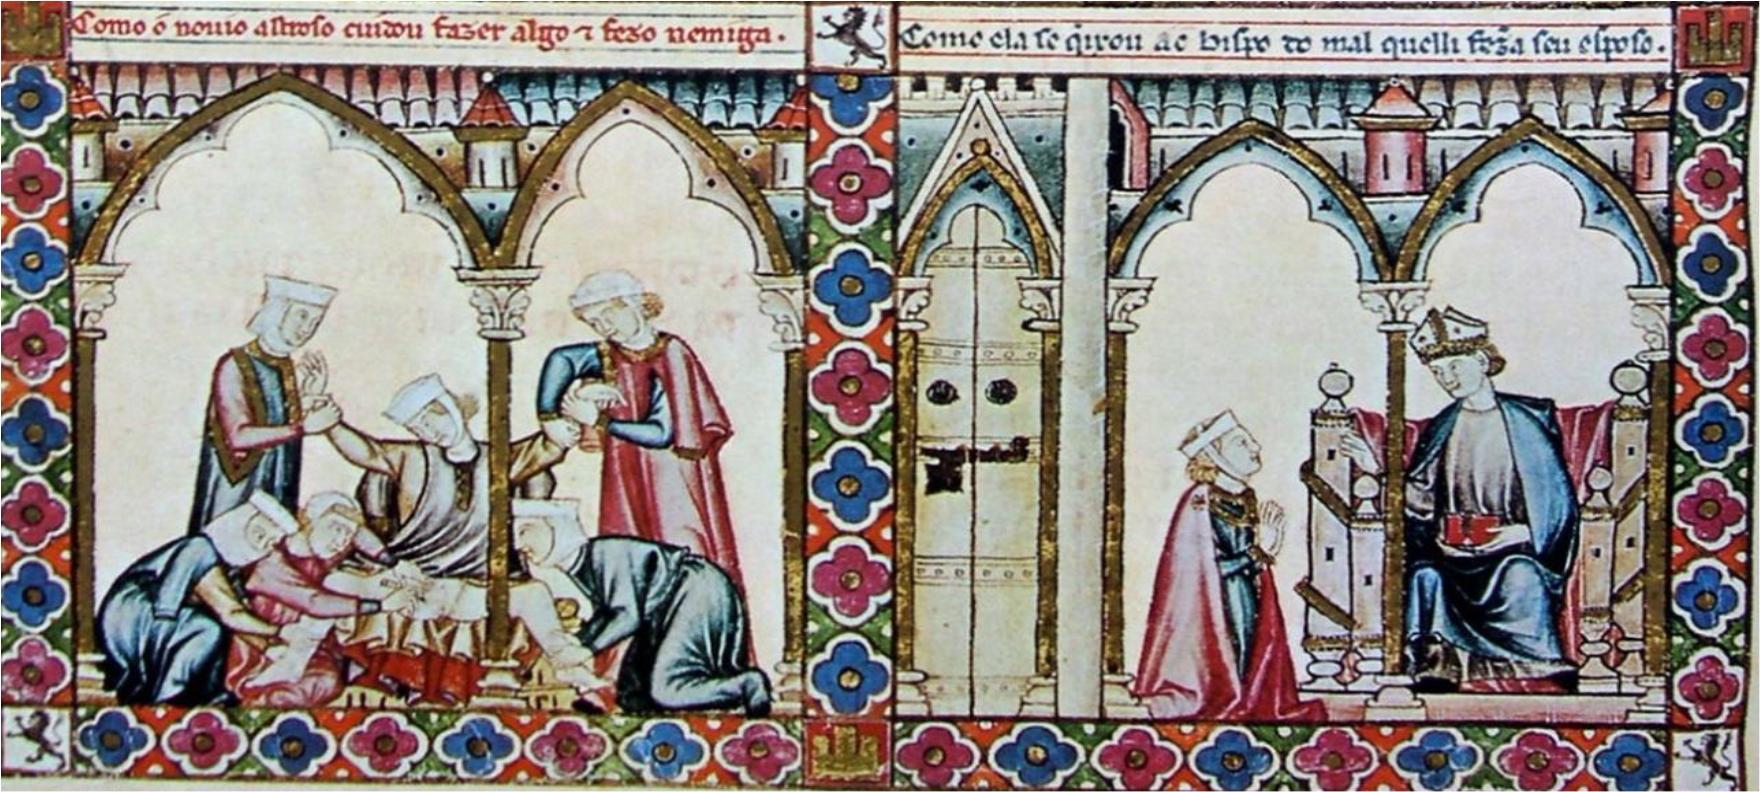 Como o nouio astroso cuidou fazer algo ⁊ fezo nemiga.
Como ela se q̇ixou ao bispo do mal quelli fez̃a seu esposo.